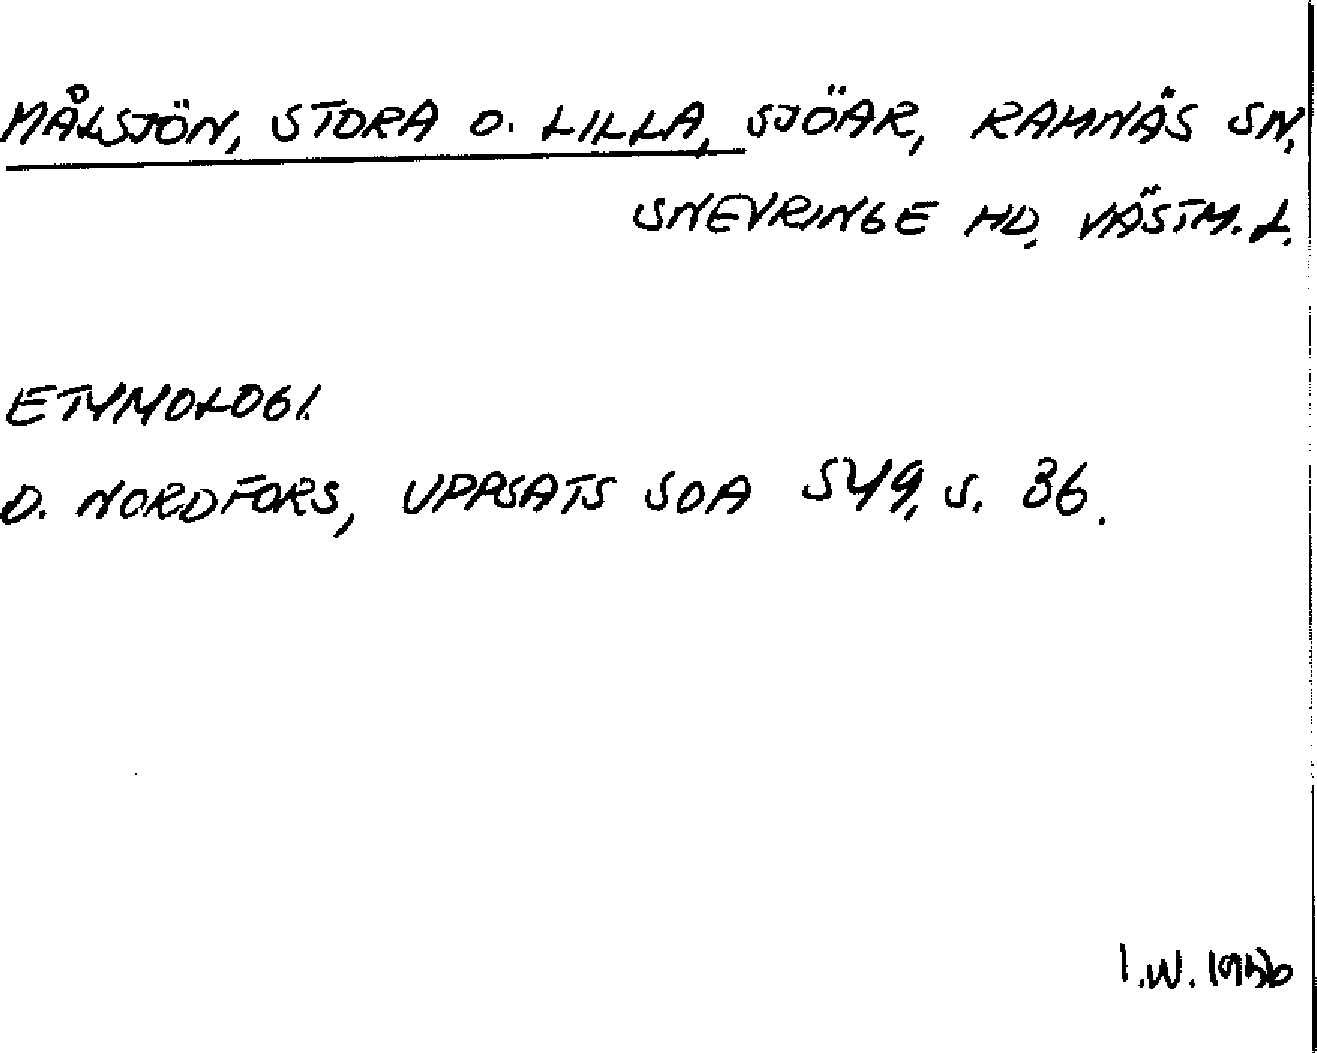 MÅLSJÖN, STORA O. LILLA, SJÖAR, RAMNÄS SN,
SNEVRINGE HD, VÄSTM. L.
ETYMOLOGI.
D. NORDFORS, UPPSATS SOA 549, S. 36.
I.W. 1956